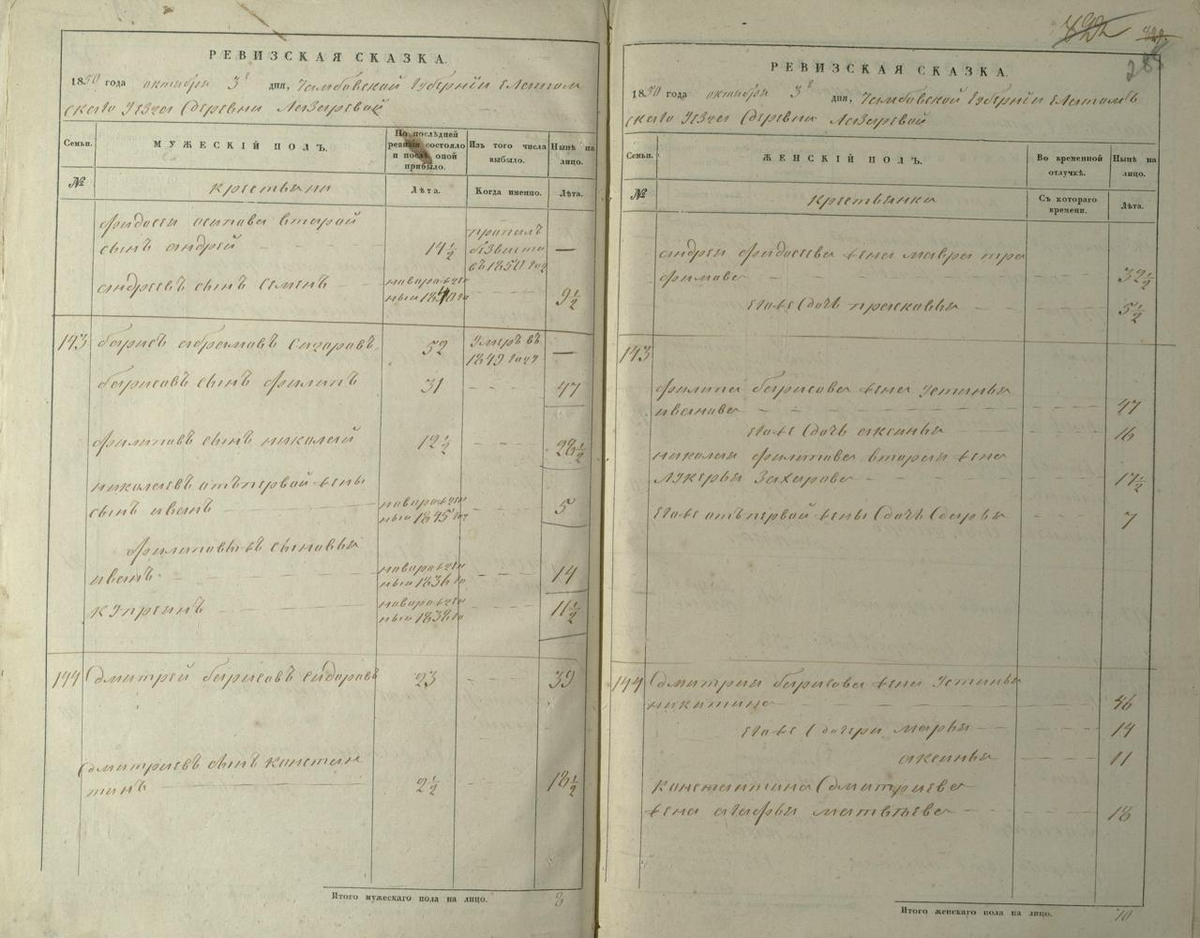 РЕВИЗСКАЯ СКАЗКА.
1850 года октября 3 дня, Тамбовской Губернии Елатом
скаго Уезда Деревни Лазаревой
Семьи.
МУЖЕСКІЙ ПОЛЪ.
По послѣдней ревизіи состояло и послѣ оной прибыло.
Изъ того числа выбыло.
Нынѣ на лицо.
№
крестьяни
Лѣта.
Когда именно.
Лѣта.
Фидосеи осипова второй
сынъ андрей 14½ пропалъ безвести въ 1850 году —
андреевъ сынъ семенъ новорожден ный 1840 го 9½
143 борисъ абрамовъ сидаровъ 52 Умеръ въ 1849 году —
борисовъ сынъ филипъ 31 47
филиповъ сынъ николай 12½ 28½
николаевъ отъ первой жены
сынъ иванъ новорожден ный 1845 год 5
филиповы же сыновья
иванъ новорожден ный 1836 го 14
купреинъ новорожден ный 1838 го 11½
144 Дмитрей борисовъ сидоровъ 23 39
Дмитриевъ сынъ констан
тинъ 2½ 18½
Итого мужескаго пола на лицо. 8
722
285
РЕВИЗСКАЯ СКАЗКА.
1850 года октября 3 дня, Тамбовской Губернии Елатомъ
скаго Уезда Деревни Лазаревой
Семьи.
ЖЕНСКІЙ ПОЛЪ.
Во временной отлучкѣ.
Нынѣ на лицо.
№
крестьянка
Съ котораго времени.
Лѣта.
андреи фидосеева жена мавра тра
фимова 32½
Его же Дочь прасковья 5½
143
филипа борисова жена Устинья
иванова 47
Его же Дочь аксинья 16
николаи филипова вторая жена
Лукерья Захарова 17½
Его же отъ первой жены Дочь Дарья 7
144 Дмитрия борисова жена Устинья
никитина 46
Его же Дочери марья 14
аксинья 11
Константина Дмитриева
жена агафья матвѣева 18
Итого женскаго пола на лицо. 10